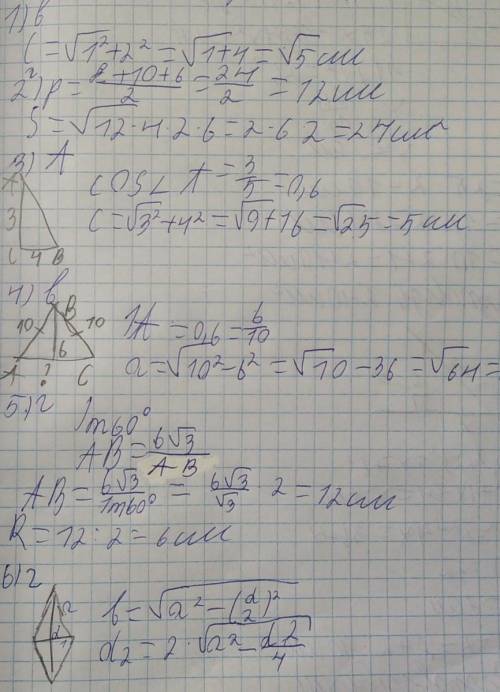 1) в
C = √1² + 2² = √1+4 = √5 см
2) г p = 8+10+6/2 = 24/2 = 12 см
S = √12·4·2·6 = 2·6 2 = 24 см²
3) А
A
3
C 4 B
cos∠A = 3/5 = 0,6
C = √3²+4² = √9+16 = √25 = 5 см
4) в
B
10 10
6
A ? C
= 0,6 = 6/10
a = √10²-6² = √10-36 = √64 =
5) г
60°
AB = 6√3/AB
AB = 6√3/ 60° = 6√3/√3 · 2 = 12 см
R = 12 : 2 = 6 см
6) г
a
d
b = √a² - (d/2)²
d₂ = 2·√a² - d²/4